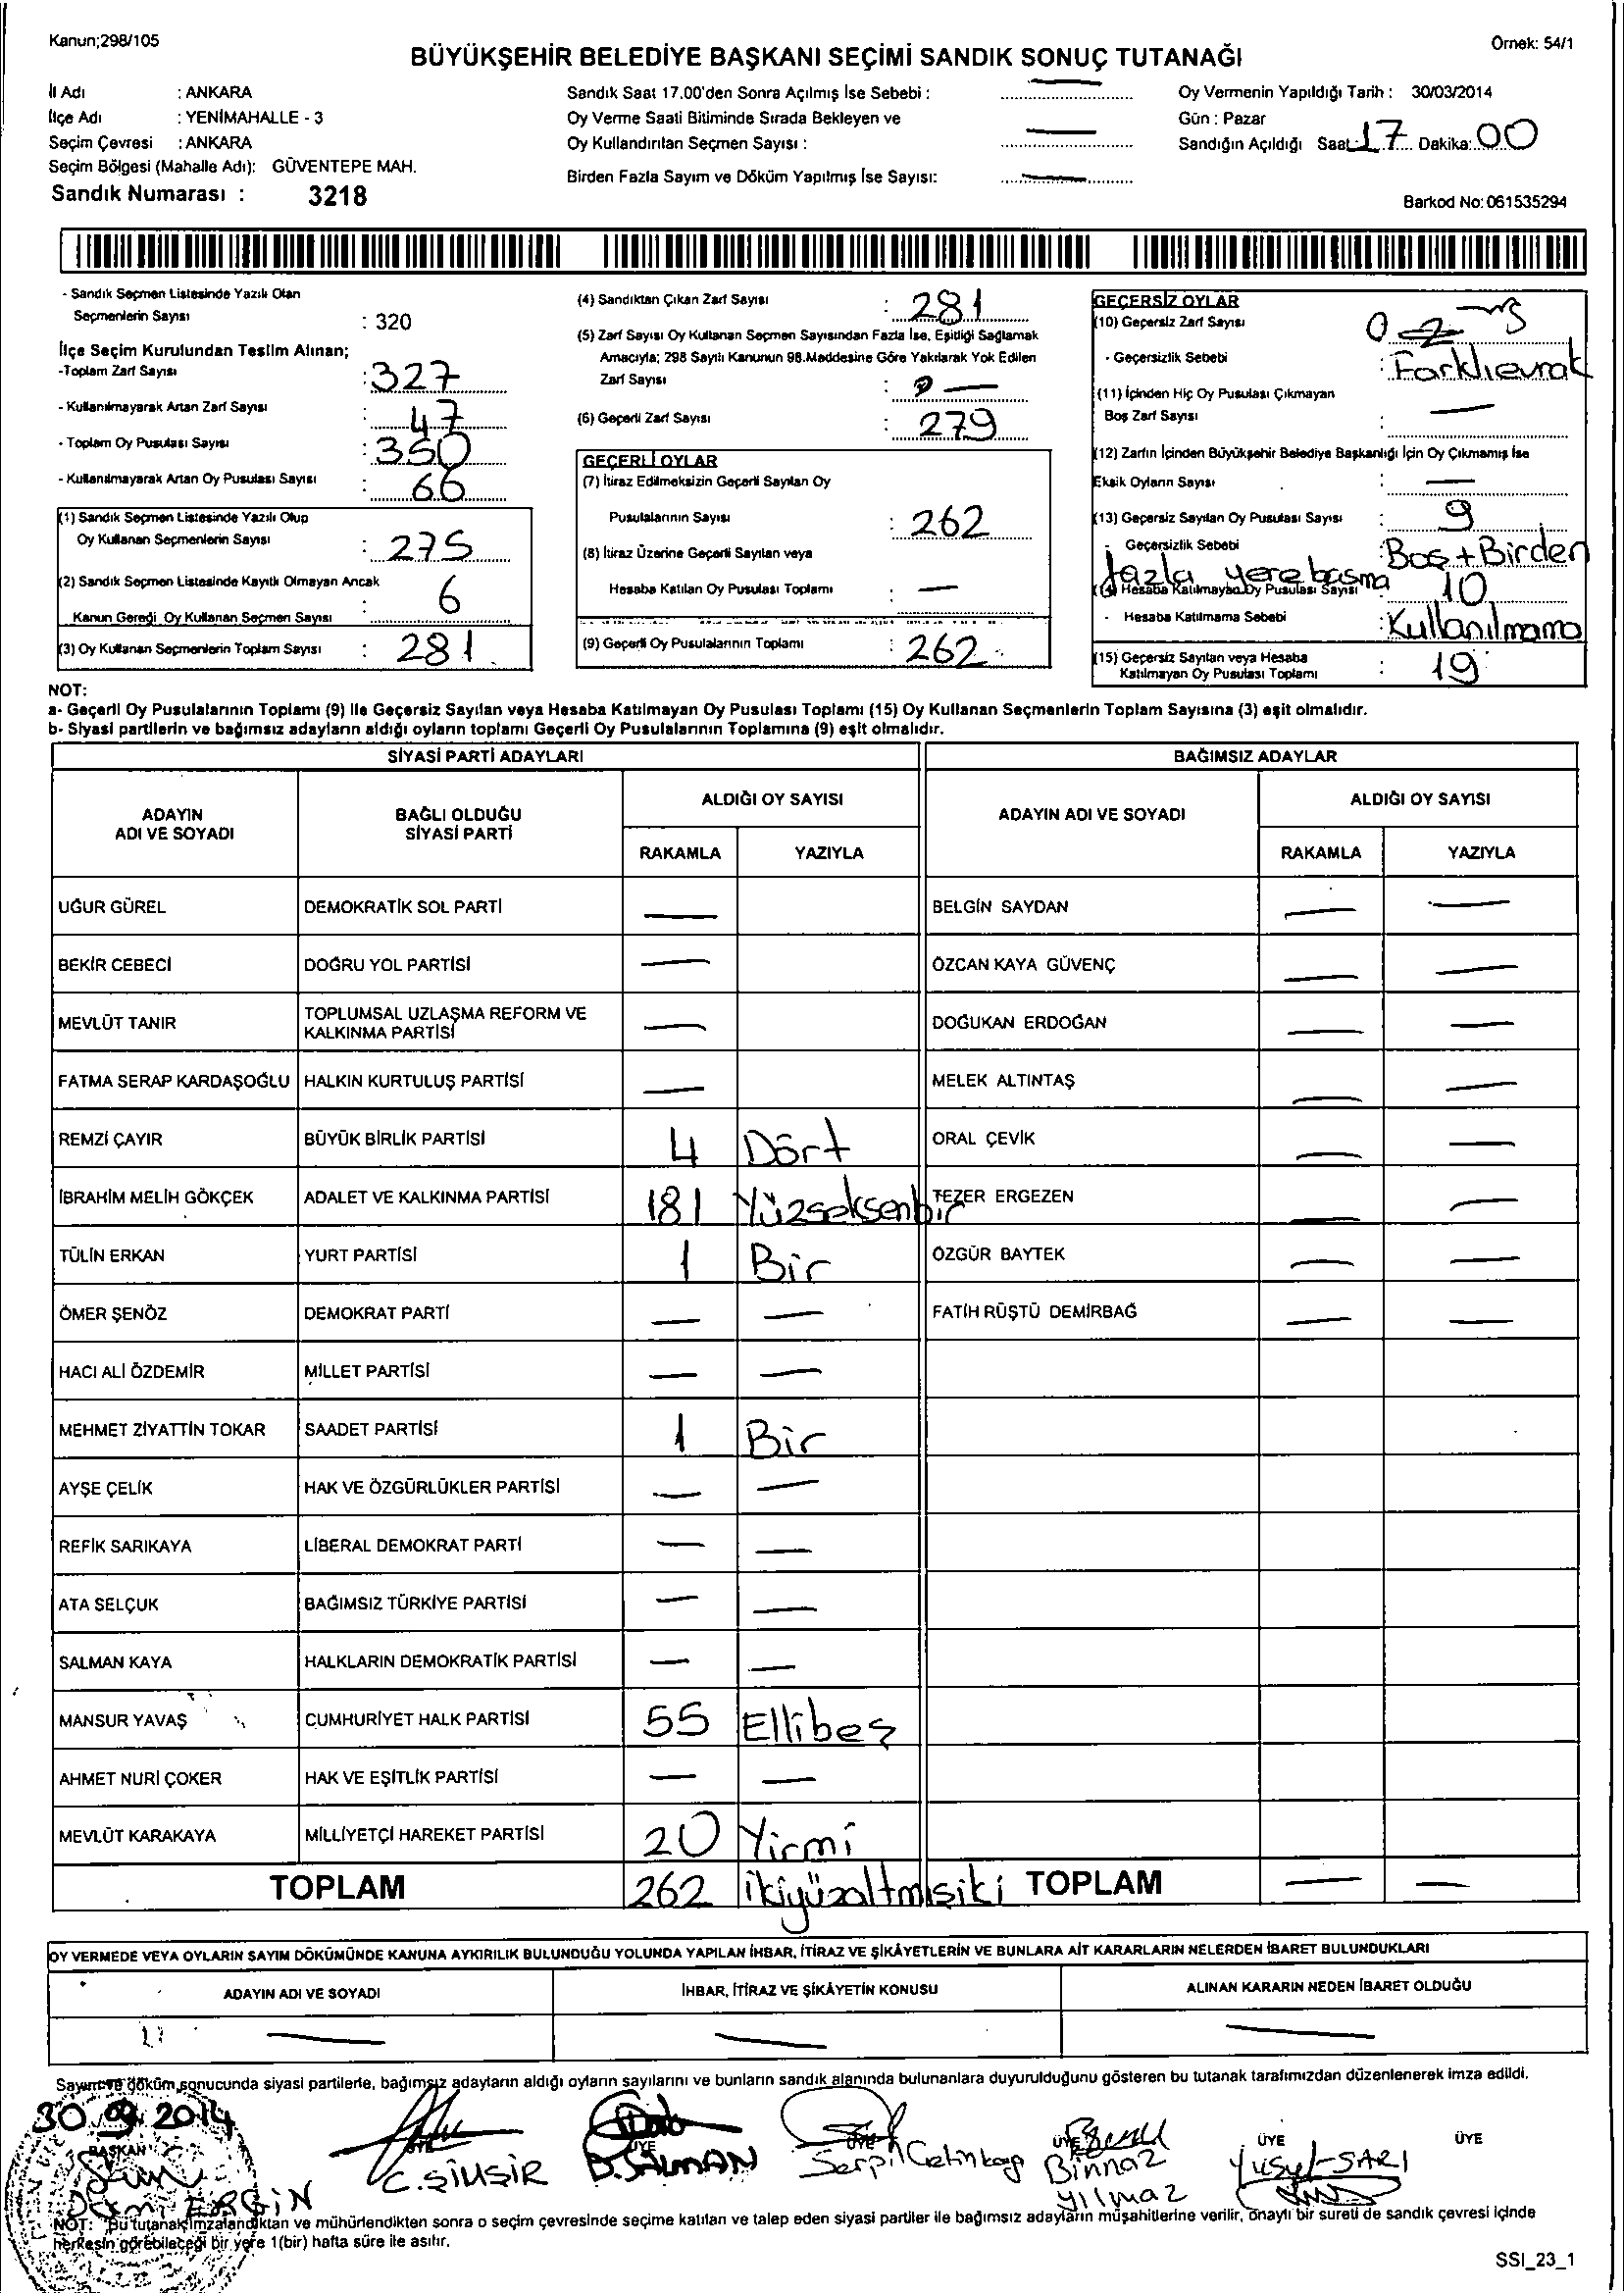 Kanun;298/105
Örnek: 54/1
BÜYÜKŞEHİR BELEDİYE BAŞKANI SEÇİMİ SANDIK SONUÇ TUTANAĞI
İl Adı : ANKARA
İlçe Adı : YENİMAHALLE - 3
Seçim Çevresi : ANKARA
Seçim Bölgesi (Mahalle Adı): GÜVENTEPE MAH.
Sandık Numarası : 3218
Sandık Saat 17.00'den Sonra Açılmış İse Sebebi : —
Oy Verme Saati Bitiminde Sırada Bekleyen ve
Oy Kullandırılan Seçmen Sayısı : —
Birden Fazla Sayım ve Döküm Yapılmış İse Sayısı: —
Oy Vermenin Yapıldığı Tarih : 30/03/2014
Gün : Pazar
Sandığın Açıldığı Saat: 17 Dakika: 00
Barkod No: 061535294
- Sandık Seçmen Listesinde Yazılı Olan
Seçmenlerin Sayısı : 320
İlçe Seçim Kurulundan Teslim Alınan;
-Toplam Zarf Sayısı : 327
- Kullanılmayarak Artan Zarf Sayısı : 47
- Toplam Oy Pusulası Sayısı : 350
- Kullanılmayarak Artan Oy Pusulası Sayısı : 66
(1) Sandık Seçmen Listesinde Yazılı Olup
Oy Kullanan Seçmenlerin Sayısı : 275
(2) Sandık Seçmen Listesinde Kayıtlı Olmayan Ancak
Kanun Gereği Oy Kullanan Seçmen Sayısı : 6
(3) Oy Kullanan Seçmenlerin Toplam Sayısı : 281
(4) Sandıktan Çıkan Zarf Sayısı : 281
(5) Zarf Sayısı Oy Kullanan Seçmen Sayısından Fazla İse, Eşitliği Sağlamak
Amacıyla; 298 Sayılı Kanunun 98.Maddesine Göre Yakılarak Yok Edilen
Zarf Sayısı : —
(6) Geçerli Zarf Sayısı : 279
GEÇERLİ OYLAR
(7) İtiraz Edilmeksizin Geçerli Sayılan Oy
Pusulalarının Sayısı : 262
(8) İtiraz Üzerine Geçerli Sayılan veya
Hesaba Katılan Oy Pusulası Toplamı : —
(9) Geçerli Oy Pusulalarının Toplamı : 262
GEÇERSİZ OYLAR
(10) Geçersiz Zarf Sayısı 2
- Geçersizlik Sebebi : Farklıevrak
(11) İçinden Hiç Oy Pusulası Çıkmayan
Boş Zarf Sayısı : —
(12) Zarfın İçinden Büyükşehir Belediye Başkanlığı İçin Oy Çıkmamış İse
Eksik Oyların Sayısı : —
(13) Geçersiz Sayılan Oy Pusulası Sayısı : 9
- Geçersizlik Sebebi : Boş+Birden
fazla yere basma
(14) Hesaba Katılmayan Oy Pusulası Sayısı : 10
- Hesaba Katılmama Sebebi : Kullanılmama
(15) Geçersiz Sayılan veya Hesaba
Katılmayan Oy Pusulası Toplamı : 19
NOT:
a- Geçerli Oy Pusulalarının Toplamı (9) ile Geçersiz Sayılan veya Hesaba Katılmayan Oy Pusulası Toplamı (15) Oy Kullanan Seçmenlerin Toplam Sayısına (3) eşit olmalıdır.
b- Siyasi partilerin ve bağımsız adayların aldığı oyların toplamı Geçerli Oy Pusulalarının Toplamına (9) eşit olmalıdır.
SİYASİ PARTİ ADAYLARI
BAĞIMSIZ ADAYLAR
ADAYIN
ADI VE SOYADI
BAĞLI OLDUĞU
SİYASİ PARTİ
ALDIĞI OY SAYISI
RAKAMLA YAZIYLA
ADAYIN ADI VE SOYADI
ALDIĞI OY SAYISI
RAKAMLA YAZIYLA
UĞUR GÜREL DEMOKRATİK SOL PARTİ — BELGİN SAYDAN — —
BEKİR CEBECİ DOĞRU YOL PARTİSİ — ÖZCAN KAYA GÜVENÇ — —
MEVLÜT TANIR TOPLUMSAL UZLAŞMA REFORM VE
KALKINMA PARTİSİ — DOĞUKAN ERDOĞAN — —
FATMA SERAP KARDAŞOĞLU HALKIN KURTULUŞ PARTİSİ — MELEK ALTINTAŞ — —
REMZİ ÇAYIR BÜYÜK BİRLİK PARTİSİ 4 Dört ORAL ÇEVİK — —
İBRAHİM MELİH GÖKÇEK ADALET VE KALKINMA PARTİSİ 181 Yüzseksenbir TEZER ERGEZEN — —
TÜLİN ERKAN YURT PARTİSİ 1 Bir ÖZGÜR BAYTEK — —
ÖMER ŞENÖZ DEMOKRAT PARTİ — — FATİH RÜŞTÜ DEMİRBAĞ — —
HACI ALİ ÖZDEMİR MİLLET PARTİSİ — —
MEHMET ZİYATTİN TOKAR SAADET PARTİSİ 1 Bir
AYŞE ÇELİK HAK VE ÖZGÜRLÜKLER PARTİSİ — —
REFİK SARIKAYA LİBERAL DEMOKRAT PARTİ — —
ATA SELÇUK BAĞIMSIZ TÜRKİYE PARTİSİ — —
SALMAN KAYA HALKLARIN DEMOKRATİK PARTİSİ — —
MANSUR YAVAŞ CUMHURİYET HALK PARTİSİ 55 Ellibeş
AHMET NURİ ÇOKER HAK VE EŞİTLİK PARTİSİ — —
MEVLÜT KARAKAYA MİLLİYETÇİ HAREKET PARTİSİ 20 Yirmi
TOPLAM 262 ikiyüzaltmışiki TOPLAM — —
OY VERMEDE VEYA OYLARIN SAYIM DÖKÜMÜNDE KANUNA AYKIRILIK BULUNDUĞU YOLUNDA YAPILAN İHBAR, İTİRAZ VE ŞİKÂYETLERİN VE BUNLARA AİT KARARLARIN NELERDEN İBARET BULUNDUKLARI
ADAYIN ADI VE SOYADI İHBAR, İTİRAZ VE ŞİKÂYETİN KONUSU ALINAN KARARIN NEDEN İBARET OLDUĞU
— — —
Sayım ve döküm sonucunda siyasi partilerle, bağımsız adayların aldığı oyların sayılarını ve bunların sandık alanında bulunanlara duyurulduğunu gösteren bu tutanak tarafımızdan düzenlenerek imza edildi.
30 2014
BAŞKAN ÜYE ÜYE ÜYE ÜYE ÜYE ÜYE
ERGİN C. ŞİMŞİR D. SALMAN Serpil Çetinkaya Binnaz Yılmaz Yusuf SARI
NOT: Bu tutanak imzalandıktan ve mühürlendikten sonra o seçim çevresinde seçime katılan ve talep eden siyasi partiler ile bağımsız adayların müşahitlerine verilir, onaylı bir sureti de sandık çevresi içinde
herkesin görebileceği bir yere 1(bir) hafta süre ile asılır.
SSI_23_1